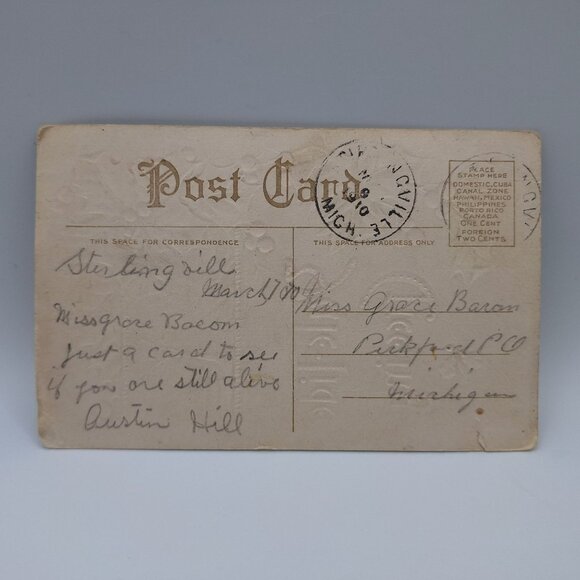 Post Card
NGVILLE
MICH.
1910
NGVI
PLACE
STAMP HERE
DOMESTIC, CUBA
CANAL ZONE
HAWAII, MEXICO
PHILIPPINES
PORTO RICO
CANADA
ONE CENT
FOREIGN
TWO CENTS
THIS SPACE FOR CORRESPONDENCE
THIS SPACE FOR ADDRESS ONLY
Sterlingvill
March 7
Miss grace Bacom
just a card to see
if you are still alive
Austin Hill
Miss Grace Bacon
Pickford P O
Michigan